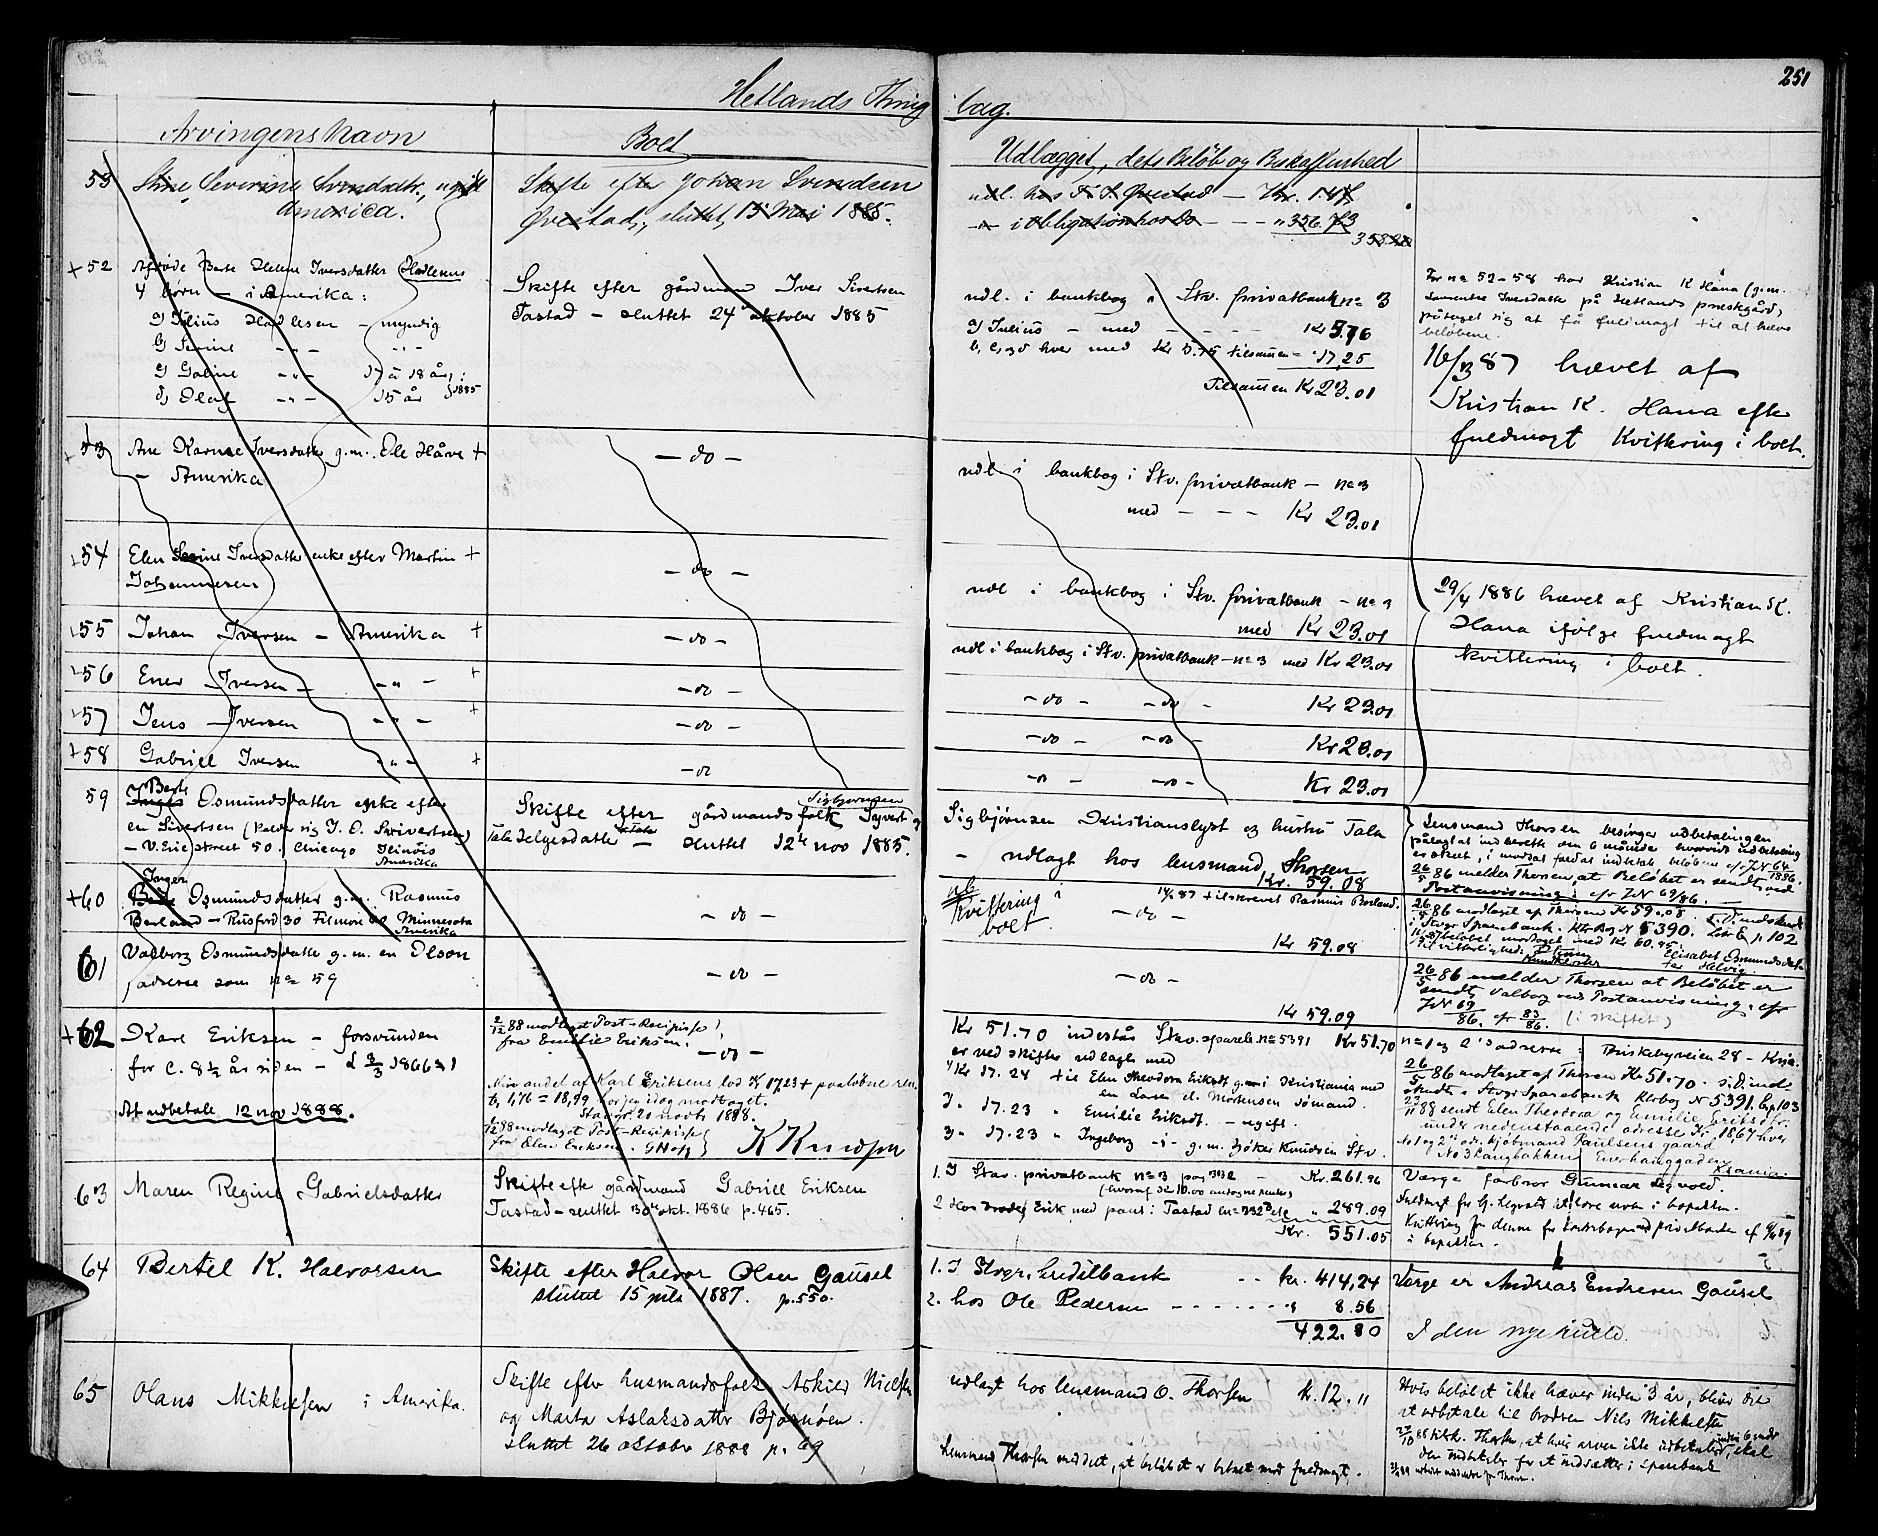 251
Hetlands Thing lag.
Arvingens Navn
Boet
Udlægget, dets Beløb og Beskaffenhed
53 Stine Severine Svendsdtr, ugift
America.
Skifte efter Johan Svendsen
Øvestad, sluttet 15 Mai 1885.
udl. hos
i Obligation hos Do " 356.73
+52 Afdøde Berte Helene Iversdatter Hadlesens
4 børn — i Amerika:
a) Julius Hadlesen — myndig
b) Serine -"- -"-
c) Galine -"- 17 à 18 år
d) Olaf -"- 15 år 1885
Skifte efter gårdmand Iver Sivertsen
Tastad — sluttet 24 oktober 1885
udl. i bankbog i Stv. privatbank no 3
a) Julius — med - - - Kr 5.76
b, c, og d hver med Kr 5.75 tilsammen = " 17,25
Tilsammen Kr 23.01
For no 52-58 har Kristian K Håna (g.m.
Iversdatter på Hetlands præstegård)
påtaget sig at få fuldmagt til at hæve
beløbene.
16/3 87 hævet af
Kristian K. Hana efter
fuldmagt Kvittering i boet.
53 Ane Karine Iversdatter g.m. Ole Håve +
— Amerika
— do —
udl i bankbog i Stv. privatbank — no 3
med - - - Kr 23.01
+54 Elen Serine Iversdatter enke efter Martin +
Johannesen
— do —
udl i bankbog i Stv. privatbank — no 3
med Kr 23.01
29/4 1886 hævet af Kristian K.
Hana ifølge fuldmagt
kvittering i boet.
+55 Johan Iversen — Amerika +
— do —
udl i bankbog i Stv. privatbank — no 3 med Kr 23.01
+56 Ener Iversen — -"- +
— do —
— do — — do — Kr 23.01
+57 Jens Iversen -"- +
— do —
— do — — do — Kr 23.01
+58 Gabriel Iversen -"- +
— do
— do — — do — Kr 23.01
59 Berte
Inger Osmundsdatter enke efter
en Sivertsen (kalder sig J. O. Sivertsen)
— V. Erie street 50. Chicago Ilinois
Amerika
Sigbjørnsen
Skifte efter gårdmandsfolk Syvert og
Tala Helgesdatter — sluttet 12te nov 1885.
Sigbjørnsen Kristianslyst og hustru Tala
— udlagt hos lensmand Thorsen
Kr. 59.08
Lensmand Thorsen besørger udbetalingen
pålagt at indberette den 6 måneder hvorvidt udbetaling
er skeet, i modsat fald at indbetale beløbene cfr JN 64/1886.
26/5 86 melder Thorsen, at Beløbet er sendt ved
Postanvisning, cfr JN 69/86. —
+60 Inger
Berte Osmundsdatter g.m. Rasmus
Borland — Rusford 30 Filmore Co Minnesota
Amerika
— do —
nb
Kvittering i
boet.
87 tilskrevet Rasmus Borland.
— do —
Kr 59.08
26/5 86 modtaget af Thorsen Kr 59.08
i Stvgr Sparebank. Ktrbog N 5390. Litr E p 102
beløbet modtaget med Kr 60.95.
Elisabet Osmundsdat-
ter Helvig.
61 Valborg Osmundsdatter g.m. en Olson
adresse som no 59
— do —
— do —
Kr 59.09
26/5 86 melder Thorsen at Beløbet er
sendt Valborg ved Postanvisning, cfr
JN 69/86. cfr 83/86. (i skiftet)
+62 Karl Eriksen — forsvunden
for c. 8½ år siden — d 3/3 1866
At udbetale 12 nov 1888.
2/12 88 modtaget Post-Recipisse
fra Emilie Eriksen.
— do —
Min andel af Karl Eriksens lod Kr 17,23 + paaløbne ren-
ter 1,76 = 18,99 har jeg idag modtaget.
Stavgr 20 novbr 1888.
K Knudsen
12/12 88 modtaget Post-Recipisse
fra Elen Eriksen.
Kr 51.70 indestår Stv. spareb. no 5391 Kr 51.70
er ved skifte udlagt med
1/ Kr 17.24 til Elen Theodora Eriksdt g.m. i Kristiania med
en Lars el. Mortensen sømand
2. " 17.23 " Emilie Eriksdt. — ugift.
3. " 17.23 " Ingeborg -"- g.m. Høker Knudsen Stv.
no 1 og 2's adresse: Briskebyveien 28 — Kria.
26/5 86 modtaget af Thorsen Kr 51.70.
Stvgr Sparebank Ktrbog N 5391. E p 103
23/11 88 sendt Elen Theodora og Emilie Eriksdtr.
under nedenstaaende adresse Kr. 18,67 hver
Kjøbmand Paulsens gaard
No 3 Langbakken Enerhauggaden
Krania.
63 Maren Regine Gabrielsdatter
Skifte efte gårdmand Gabriel Eriksen
Tastad — sluttet 30 okt. 1886 p. 465.
1. I Stav. privatbank no 3 pag 332 — Kr. 261.96
2 Hos broder Erik med pant i Tastad " 289.09
Kr. 551.05
Værge farbror Gunnar Legvold.
Kvittering
64 Bertel K. Halvorsen
Skifte efter Halvor Olsen Gausel
sluttet 15 1887. p. 550.
1. I Stvgr. Creditbank - - kr. 414,24
2. hos Ole Pedersen - - - - - " 8.56
422.80
Værge er Andreas Endresen Gausel
I den nye
65 Olaus Mikkelsen i Amerika.
Skifte efter husmandsfolk Askild Nielsen
og Marta Aslaksdatter Bjørnøen.
sluttet 26 oktober 1888 p. 69
udlagt hos lensmand O. Thorsen k. 12.11
Lensmand Thorsen meddelt, at beløbet er betalt mod fuldmagt.
Hvis beløbet ikke hæves inden 3 år, bliver det
at udbetale til brodren Nils Mikkelsen
Thorsen, at hvis arven ikke udbetales inden 6 mdr skal
den indbetales for at indsættes i sparebank